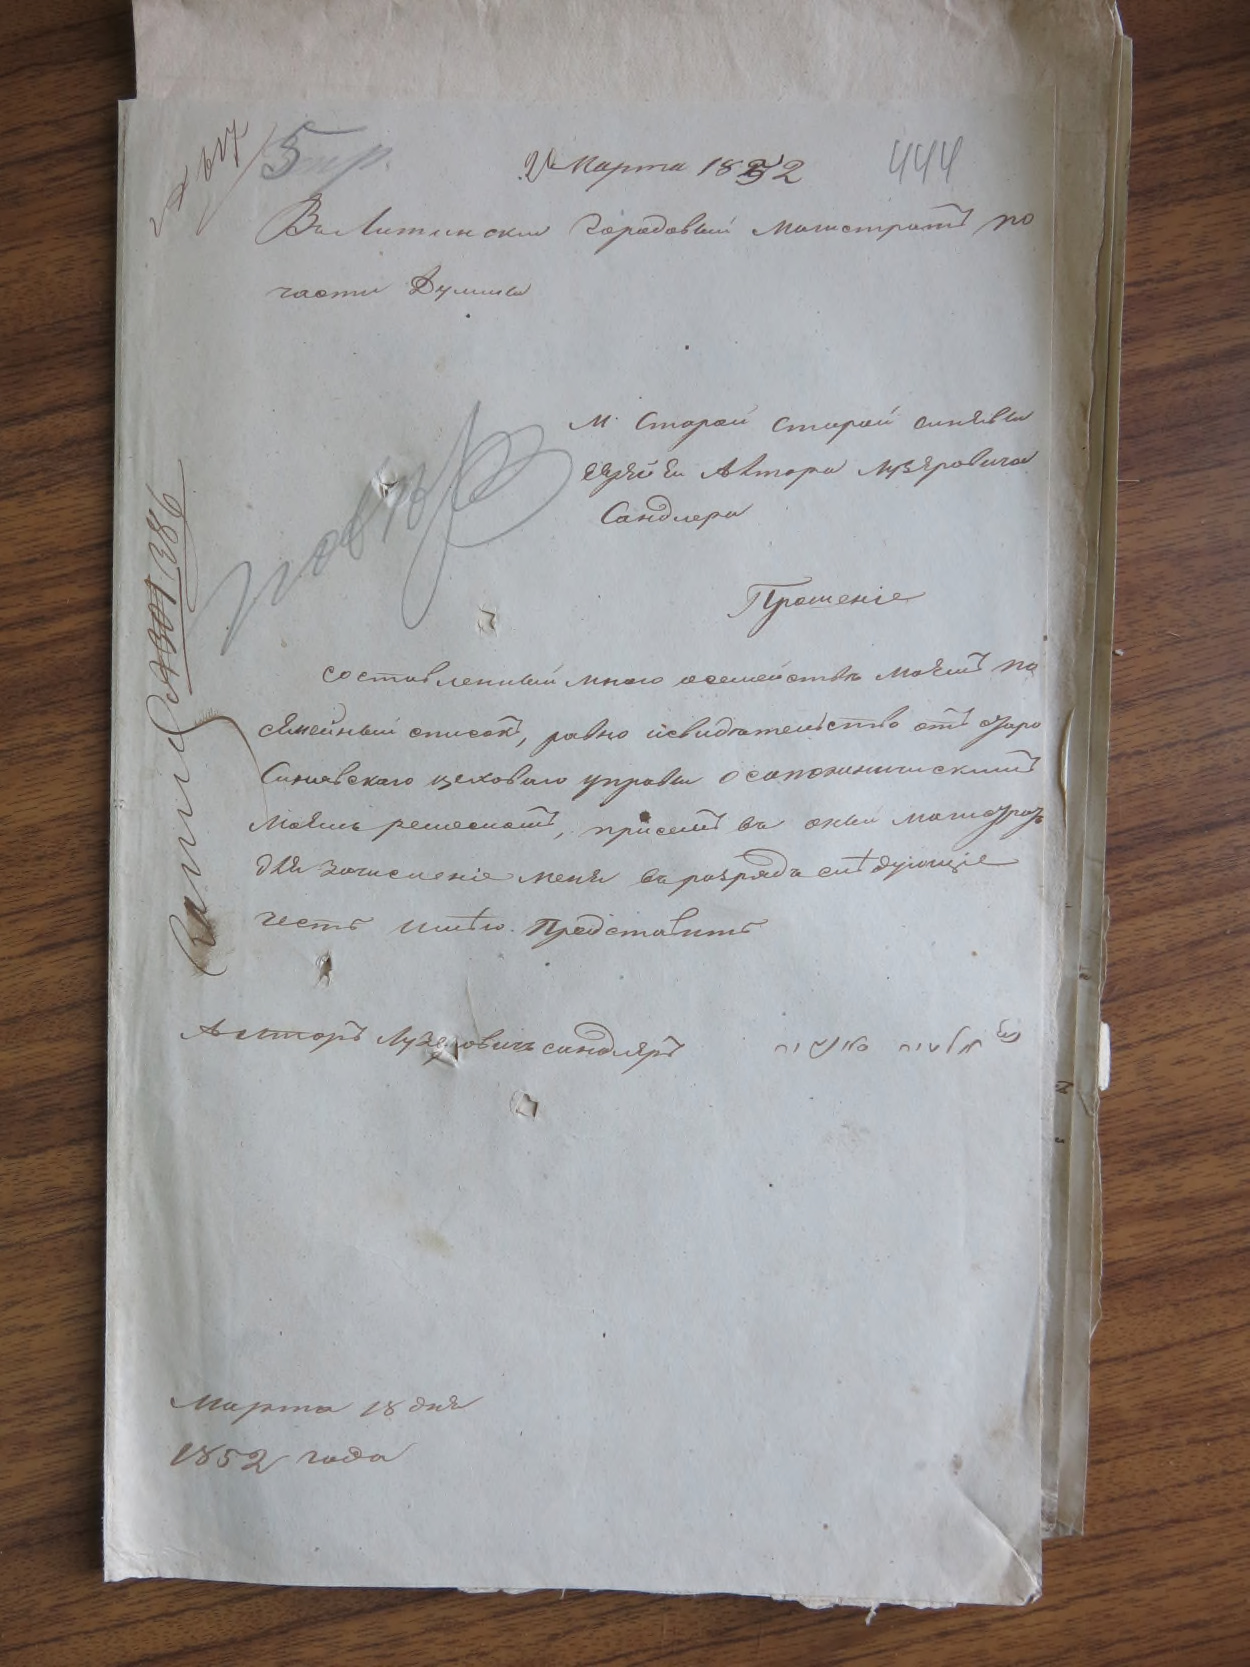 № 617
5 пр.
444
20 Марта 1852
Въ Литинскій Городовый Магистратъ по
части Думы
М Старой Старой синявы
еврея Автора Лузеровича
Сандлера
Прошеніе
составленный мною осемействѣ моемъ по
семейный списокъ, равно исвидѣтельство отъ старо
Синявскаго цеховаго управы осапожническимъ
моемъ ремеслѣ, присемъ въ оный магистратъ
для зачисленіе меня въ разряда слѣдующіе
честь имѣю Представить
Авторъ Лузеровичъ сандлеръ
Марта 18 дня
1852 года